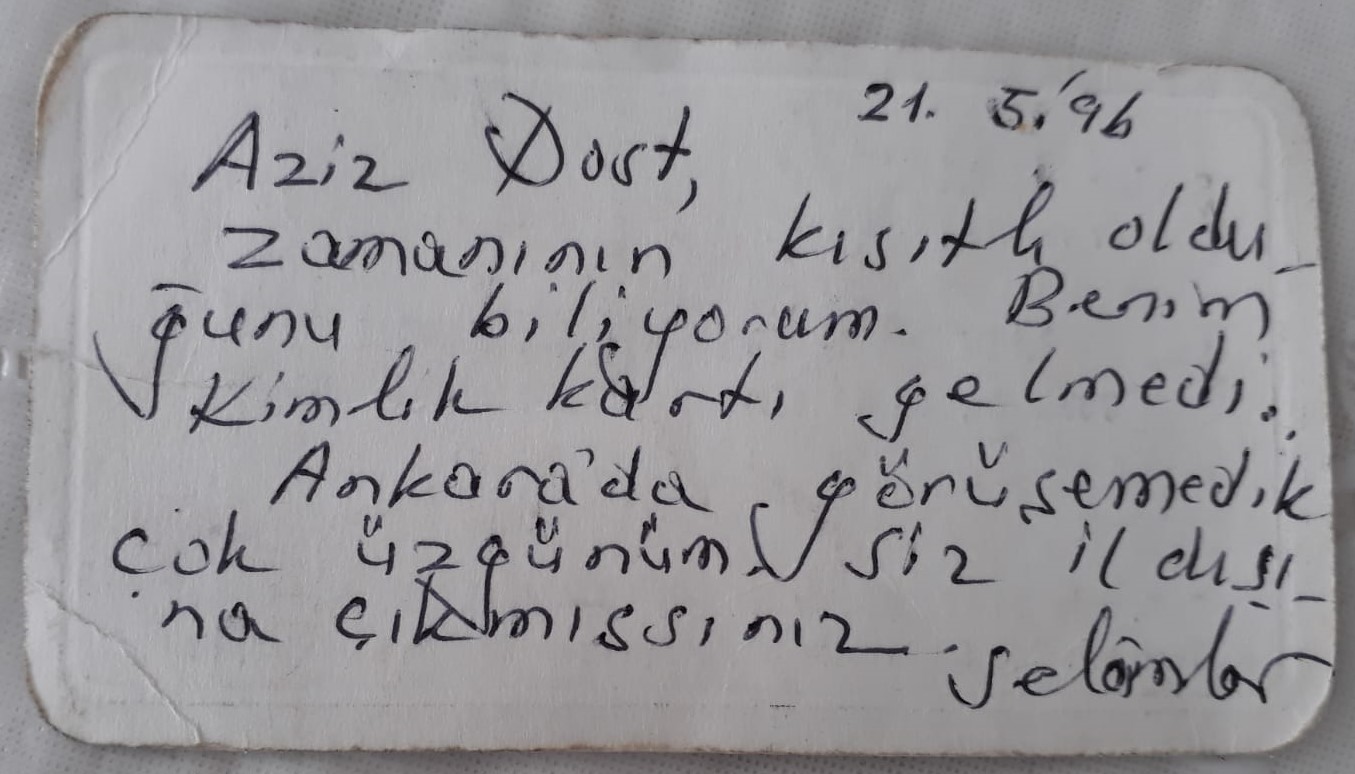 21. 5.'96
Aziz Dost,
zamanının kısıtlı oldu_
ğunu biliyorum. Benim
Kimlik kartı gelmedi.
Ankara'da görüşemedik
çok üzgünüm. Siz il dışı_
na çıkmışsınız. Selâmlar